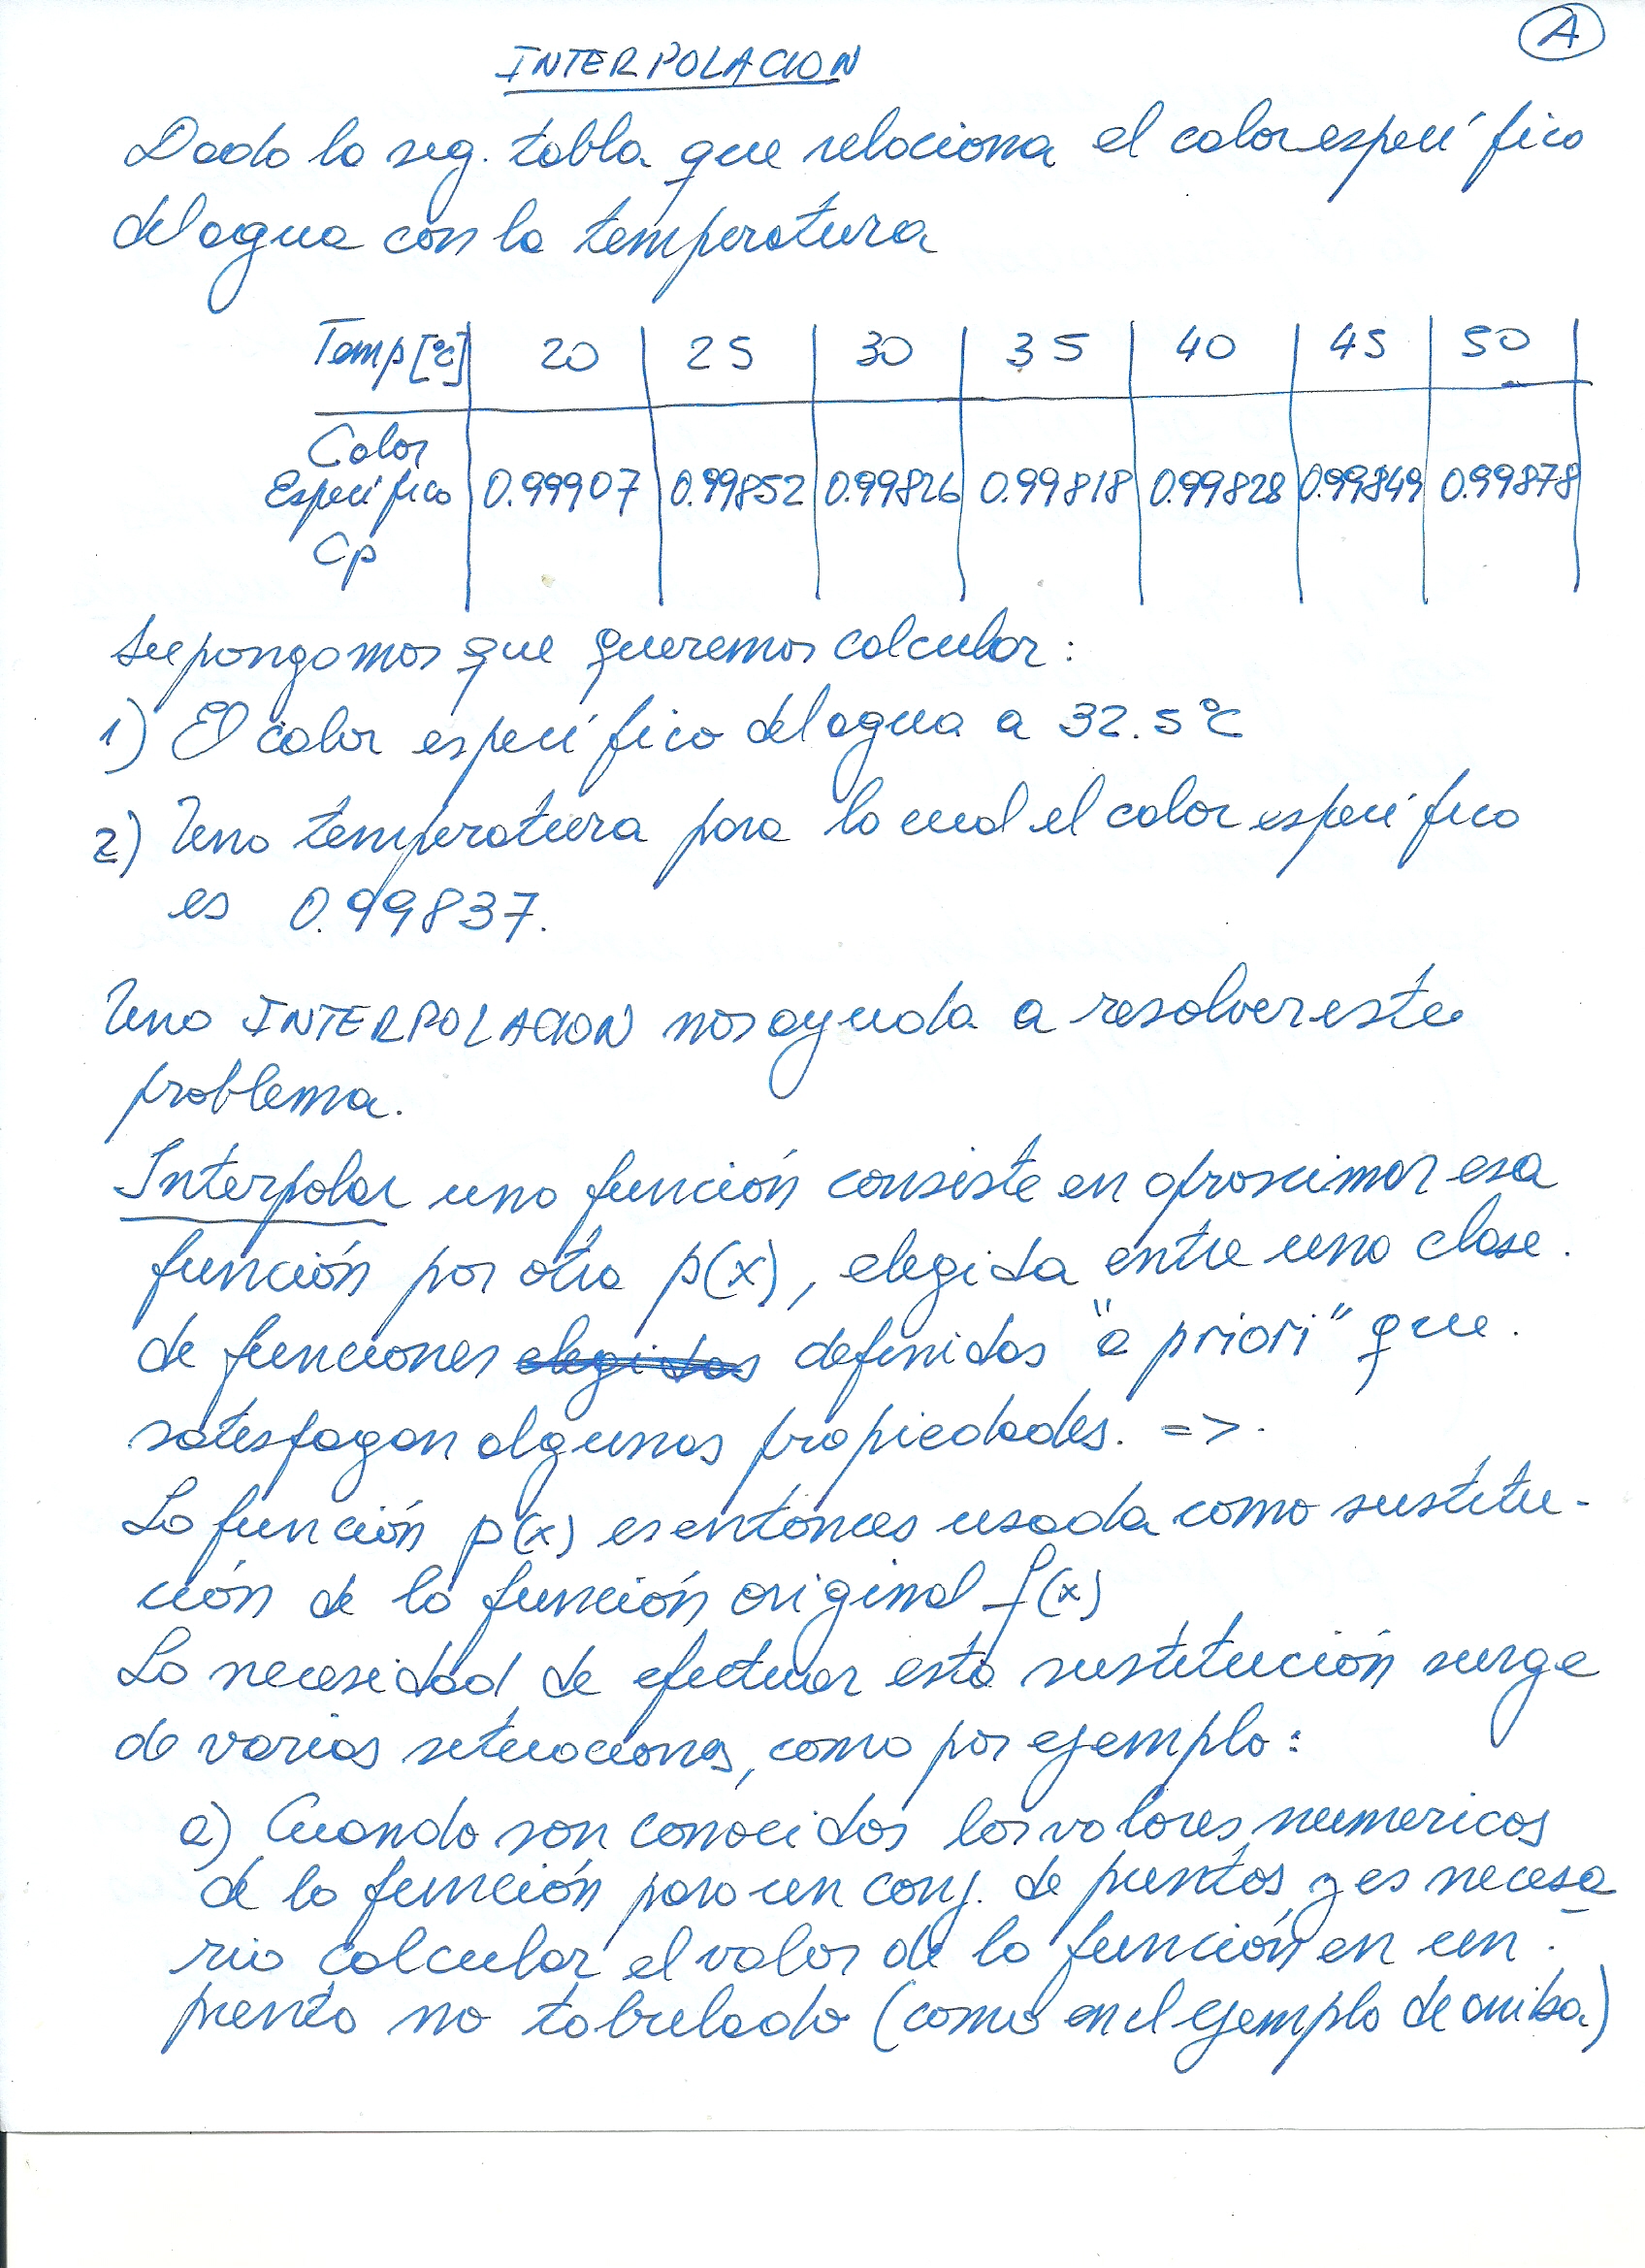 A
INTERPOLACION
Dada la seg. tabla que relaciona el calor específico
del agua con la temperatura
Temp [°C] 20 25 30 35 40 45 50
Calor
Específico 0.99907 0.99852 0.99826 0.99818 0.99828 0.99849 0.99878
Cp
Supongamos que queremos calcular:
1) El calor específico del agua a 32.5°C
2) Una temperatura para la cual el calor específico
es 0.99837.
Una INTERPOLACION nos ayuda a resolver este
problema.
Interpolar una función consiste en aproximar esa
función por otra p(x), elegida entre una clase.
de funciones elegidas definidas "a priori" que.
satisfagan algunas propiedades. =>.
La función p(x) es entonces usada como sustitu-
ción de la función original f(x)
La necesidad de efectuar esta sustitución surge
de varias situaciones, como por ejemplo:
a) Cuando son conocidos los valores numericos
de la función para un conj. de puntos y es necesa
rio calcular el valor de la función en un.
punto no tabulado (como en el ejemplo de arriba)